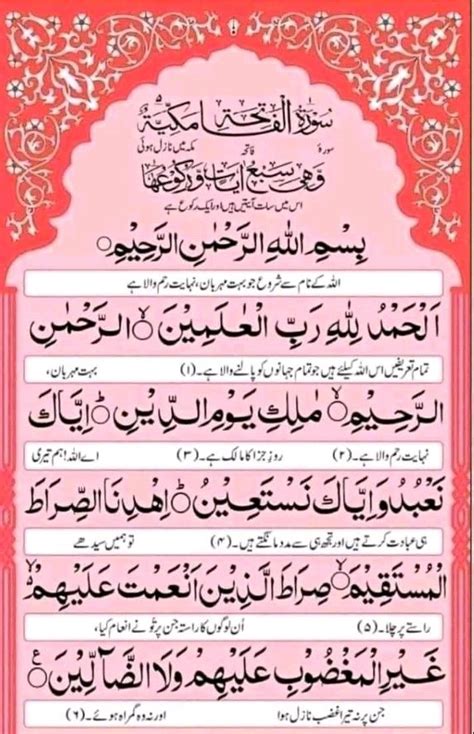 سُوْرَةُ الْفَاتِحَةِ مَكِّيَّةٌ ٥
سورۃ فاتحہ مکہ میں نازل ہوئی
وَهِيَ سَبْعُ اٰيَاتٍ وَّرُكُوْعُهَا
اس میں سات آیتیں ہیں اور ایک رکوع ہے
بِسْمِ اللهِ الرَّحْمٰنِ الرَّحِيْمِ ○
اللہ کے نام سے شروع جو بہت مہربان، نہایت رحم والا ہے
اَلْحَمْدُ لِلّٰهِ رَبِّ الْعٰلَمِيْنَ ○ۙ الرَّحْمٰنِ
تمام تعریفیں اس اللہ کیلئے ہیں جو تمام جہانوں کو پالنے والا ہے۔ (۱) بہت مہربان،
الرَّحِيْمِ ○ۙ مٰلِكِ يَوْمِ الدِّيْنِ ○ؕ اِيَّاكَ
نہایت رحم والا ہے۔ (۲) روزِ جزا کا مالک ہے۔ (۳) اے اللہ! ہم تیری
نَعْبُدُ وَاِيَّاكَ نَسْتَعِيْنُ ○ؕ اِهْدِنَا الصِّرَاطَ
ہی عبادت کرتے ہیں اور تجھ ہی سے مدد مانگتے ہیں۔ (۴) تو ہمیں سیدھے
الْمُسْتَقِيْمَ ○ۙ صِرَاطَ الَّذِيْنَ اَنْعَمْتَ عَلَيْهِمْ ۙ
راستے پر چلا۔ (۵) اُن لوگوں کا راستہ جن پر تُو نے انعام کیا،
غَيْرِ الْمَغْضُوْبِ عَلَيْهِمْ وَلَا الضَّآلِّيْنَ ○ ع
جن پر نہ تیرا غضب نازل ہوا اور نہ وہ گمراہ ہوئے۔ (۶)